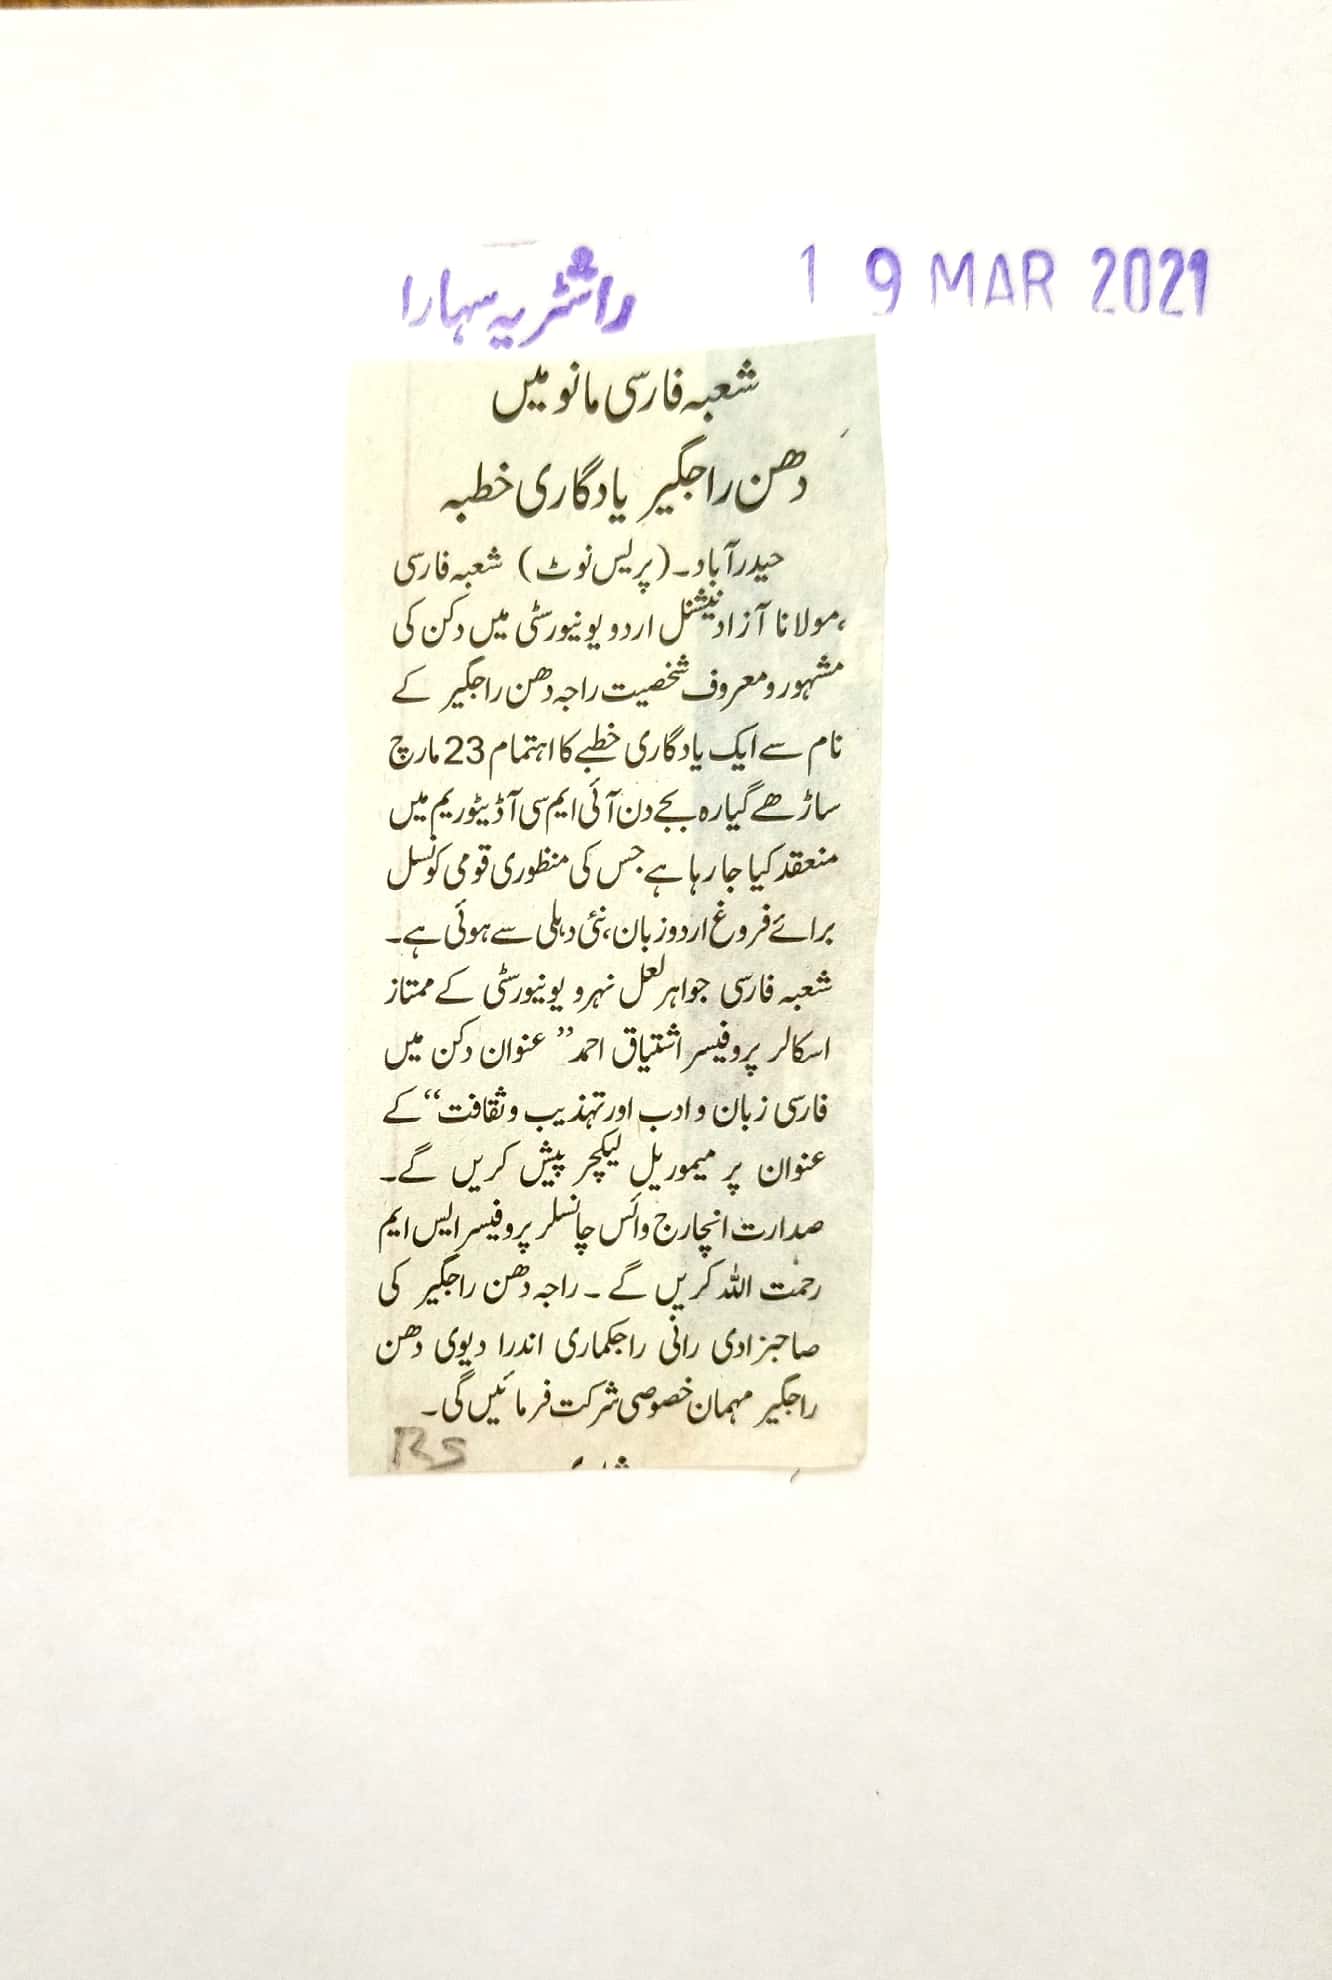 راشٹریہ سہارا
19 MAR 2021
شعبہ فارسی مانو میں
دھن راجگیر یادگاری خطبہ
حیدرآباد۔(پریس نوٹ) شعبہ فارسی
،مولانا آزاد نیشنل اردو یونیورسٹی میں دکن کی
مشہور و معروف شخصیت راجہ دھن راجگیر کے
نام سے ایک یادگاری خطبے کا اہتمام 23 مارچ
ساڑھے گیارہ بجے دن آئی ایم سی آڈیٹوریم میں
منعقد کیا جا رہا ہے جس کی منظوری قومی کونسل
برائے فروغ اردو زبان، نئی دہلی سے ہوئی ہے۔
شعبہ فارسی جواہر لعل نہرو یونیورسٹی کے ممتاز
اسکالر پروفیسر اشتیاق احمد ”عنوان دکن میں
فارسی زبان و ادب اور تہذیب و ثقافت“ کے
عنوان پر میموریل لیکچر پیش کریں گے۔
صدارت انچارج وائس چانسلر پروفیسر ایس ایم
رحمت اللہ کریں گے۔ راجہ دھن راجگیر کی
صاحبزادی رانی راجکماری اندرا دیوی دھن
راجگیر مہمان خصوصی شرکت فرمائیں گی۔
RS